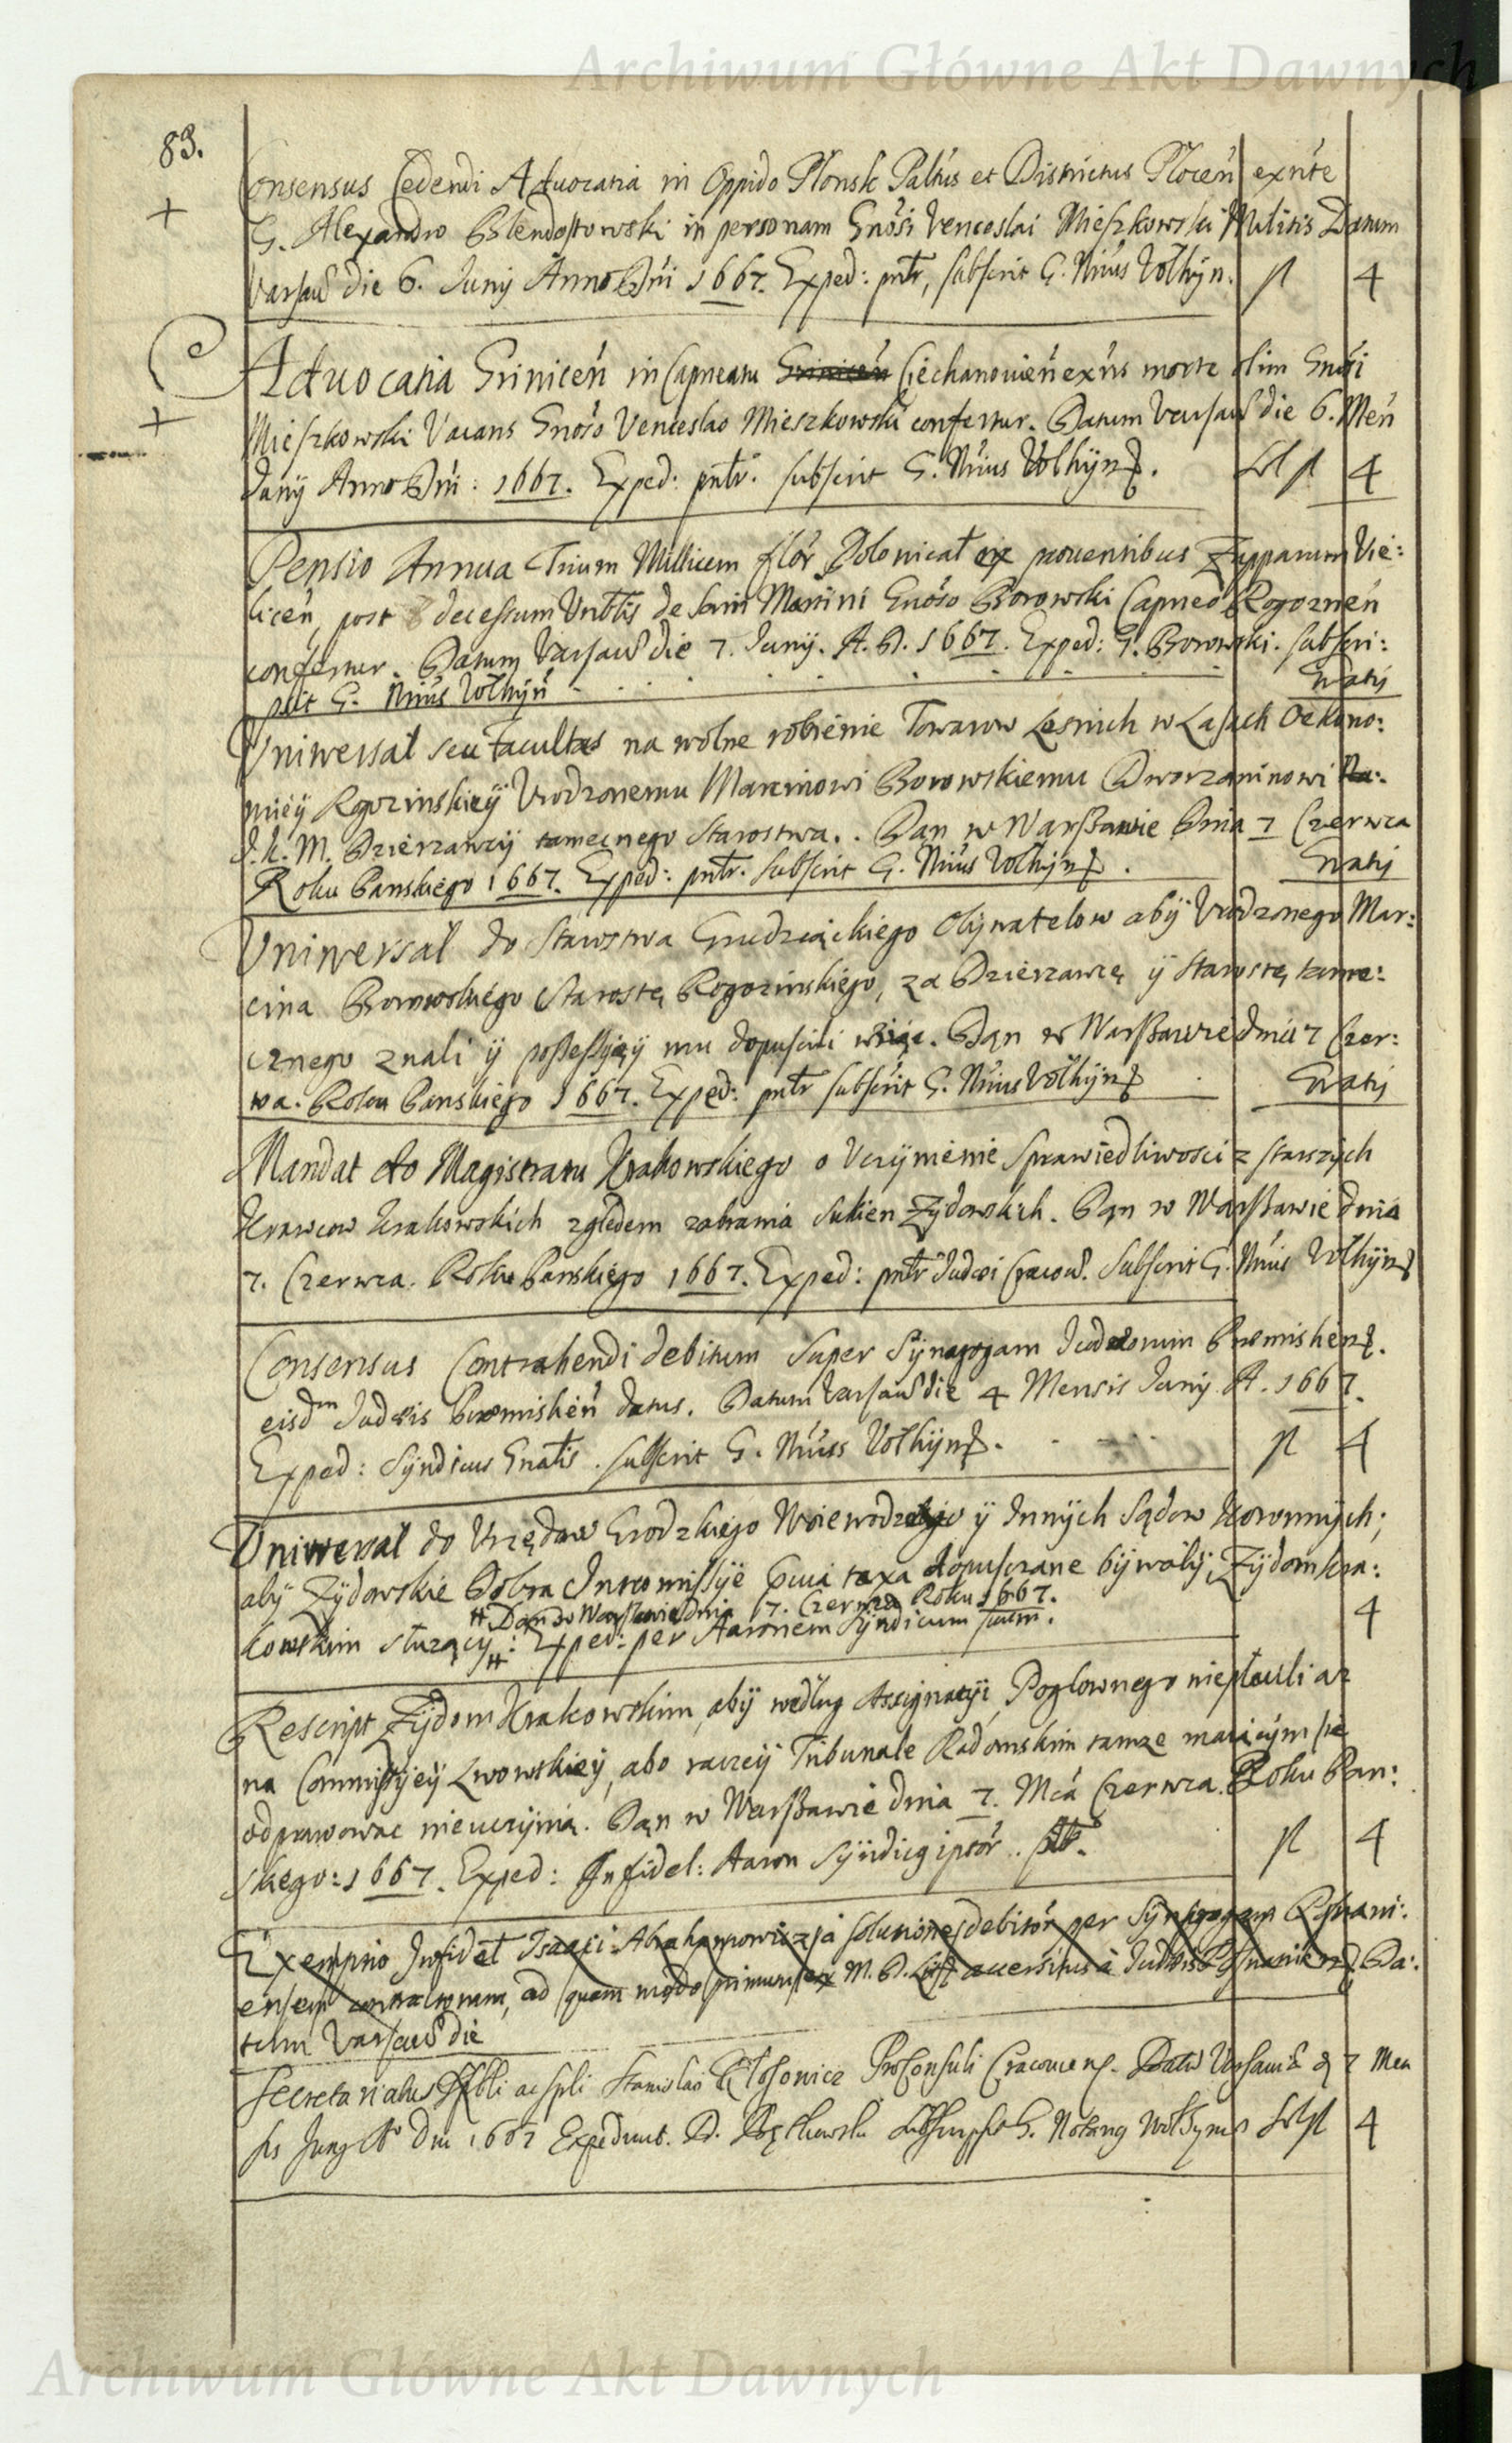 Archiwum Główne Akt Dawnych
83.
Consensus Cedendi Advocatia in Oppido Płonsk Paltűs et Districtus Płoceń exńte
G. Alexandro in personam Gnősi Venceslai Mieszkowski Militis Datum
Varsav die 6. Junij Anno Dńi 1667. Exped: pntr, subscrit G. Nńius Vołhijn. fl 4
Advocatia Griniceń in Capneatu Griniceń Ciechanovień exńs morte olim Gnősi
Mieszkowski Vacans Gnőso Venceslao Mieszkowski confertur. Datum Varsav die 6. Meń
Junij Anno Dńi: 1667. Exped: pntr. subscrit G. Nńius Vołhijn. fl 4
Pensio Annua Trium Millium flőr Polonicał ex proventibus Zupparum Vie:
liceń, post decessum de Martini Gnőso Borowski Capneo Rogozneń
confertur. Datum Varsav die 7. Junij. A. D. 1667. Exped: G. Borowski. subscri:
psit G. Nńius Vołhijń Gratis
Vniwersał seu facultas na wolne robienie Towarow Lesnich w Lasach Oekono:
miey Rgozinskieÿ Vrodzonemu Marcinowi Borowskiemu Dworzaninowi
J. K. M. Dzierzawcÿ tamecnego Starostwa. Dan w Warszawie Dnia 7 Czerwca
Roku Panskiego 1667. Exped: pntr. Subscrit G. Nńius Vołhijn. Gratis
Vniwersał do Starostwa Grudziąckiego Obÿwatelow abÿ Vrodzonego Mar:
cina Borowskiego Starostę Rogozinskiego, za Dzierzawcę ÿ Starostę tame:
cznego znali ÿ possessÿeÿ mu dopuscili wziąc. Dąn w Warszawie dnia 7 Czer:
wa. Roku Panskiego 1667. Exped: pntr subscrit G. Nńius Vołhijn Gratis
Mandat do Magistratu Krakowskiego o Vczÿnienie Sprawiedliwosci z starszÿch
Krawcow Krakowskich zględem zabrania sukien Zÿdowskich. Dąn w Warszawie dnia
7. Czerwca. Roku Panskiego 1667. Exped: pntr Judei Cracov. Subscrit G. Nńius Vołhijn
Consensus Contrahendi debitum super Sÿnagogam Judeorum Premislien.
eisdm Judeis Premislień datus. Datum Varsav die 4 Mensis Junij. A. 1667.
Exped: Sÿndicus Gnałis. subscrit G. Nńius Vołhijn. fl 4
Vniwersał do Vrzędow Grodzkiego Woiewodzkiego ÿ Innÿch Sądow Koronnÿch;
abÿ Zÿdowskie Dobra Intromissÿe taxa dopuszczane bÿwałÿ, Zÿdom Kra:
Dan w Warszawie dnia 7. Czerwca Roku 1667.
kowskim słuzący: Exped: per Aaronem Sÿndicum suum. 4
Rescript Zÿdom Krakowskim, abÿ według Assignacÿi, Pogłownego niepłacili az
na Commissÿeÿ Lwowskieÿ, abo raczeÿ Tribunale Radomskim tamze maiącÿm się
odprawowac nieuczÿnią. Dąn w Warszawie dnia 7. Mca Czerwca. Roku Pan:
skego: 1667. Exped: Infidel: Aaron Sÿndicg ipsőr. fl 4
Exemptio Infideł Isaaci Abrahamowicz a solutione debitőr per Sÿnagogam Posnani:
ensem contractorum, ad quam modo primum ex M. D. aversitus a Judeis Posnanien. Da:
tum Varsav die
Secretariatus Spli Stanislao Proconsuli Cracoviens. Varsaviæ d 7 Men
sis Junij Ao Dni 1667 Expedivit. D. Subscripsit G. Notariq Wołÿn 4
Archiwum Główne Akt Dawnych